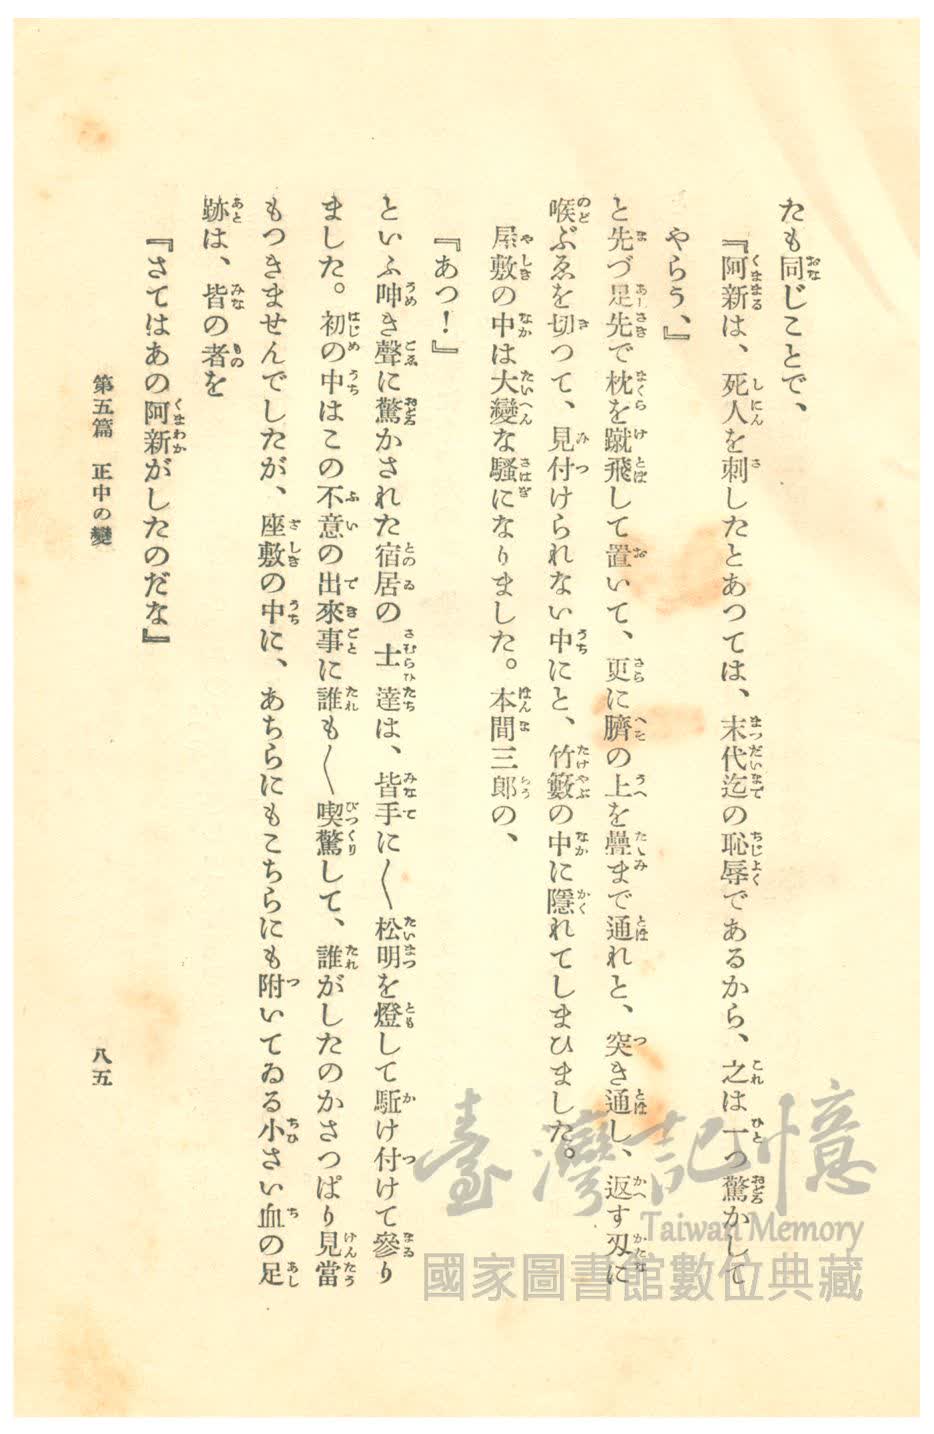 たも同じことで、
『阿新は、死人を刺したとあつては、末代迄の恥辱であるから、之は一つ驚かして
やらう、』
と先づ足先で枕を蹴飛して置いて、更に臍の上を疊まで通れと、突き通し、返す刄に
喉ぶゑを切つて、見付けられない中にと、竹籔の中に隱れてしまひました。
屋敷の中は大變な騷になりました。本間三郎の、
『あつ！』
といふ呻き聲に驚かされた宿居の士達は、皆手に〳〵松明を燈して駈け付けて參り
ました。初の中はこの不意の出來事に誰も〳〵喫驚して、誰がしたのかさつぱり見當
もつきませんでしたが、座敷の中に、あちらにもこちらにも附いてゐる小さい血の足
跡は、皆の者を
『さてはあの阿新がしたのだな』
第五篇 正中の變
八五
臺灣記憶
Taiwan Memory
國家圖書館數位典藏